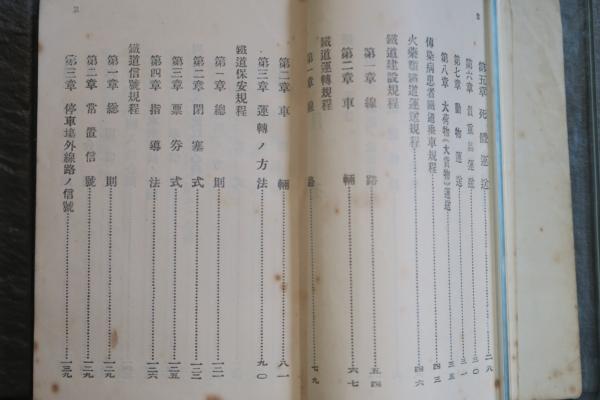 第五章 死體運送 二八
第六章 貴重品運送 三〇
第七章 動物運送 三一
第八章 大荷物《大貨物》運送 三五
傳染病患者鐵道乘車規程 四三
火藥類鐵道運送規程 四六
鐵道建設規程
第一章 線路 五四
第二章 車輛 六七
鐵道運轉規程
第一章 線路 七九
第二章 車輛 八一
第三章 運轉ノ方法 九〇
鐵道保安規程
第一章 總則 一二一
第二章 閉塞式 一二二
第三章 票券式 一二五
第四章 指導法 一二六
鐵道信號規程
第一章 總則 一二九
第二章 常置信號 一二九
第三章 停車場外線路ノ信號 一三九